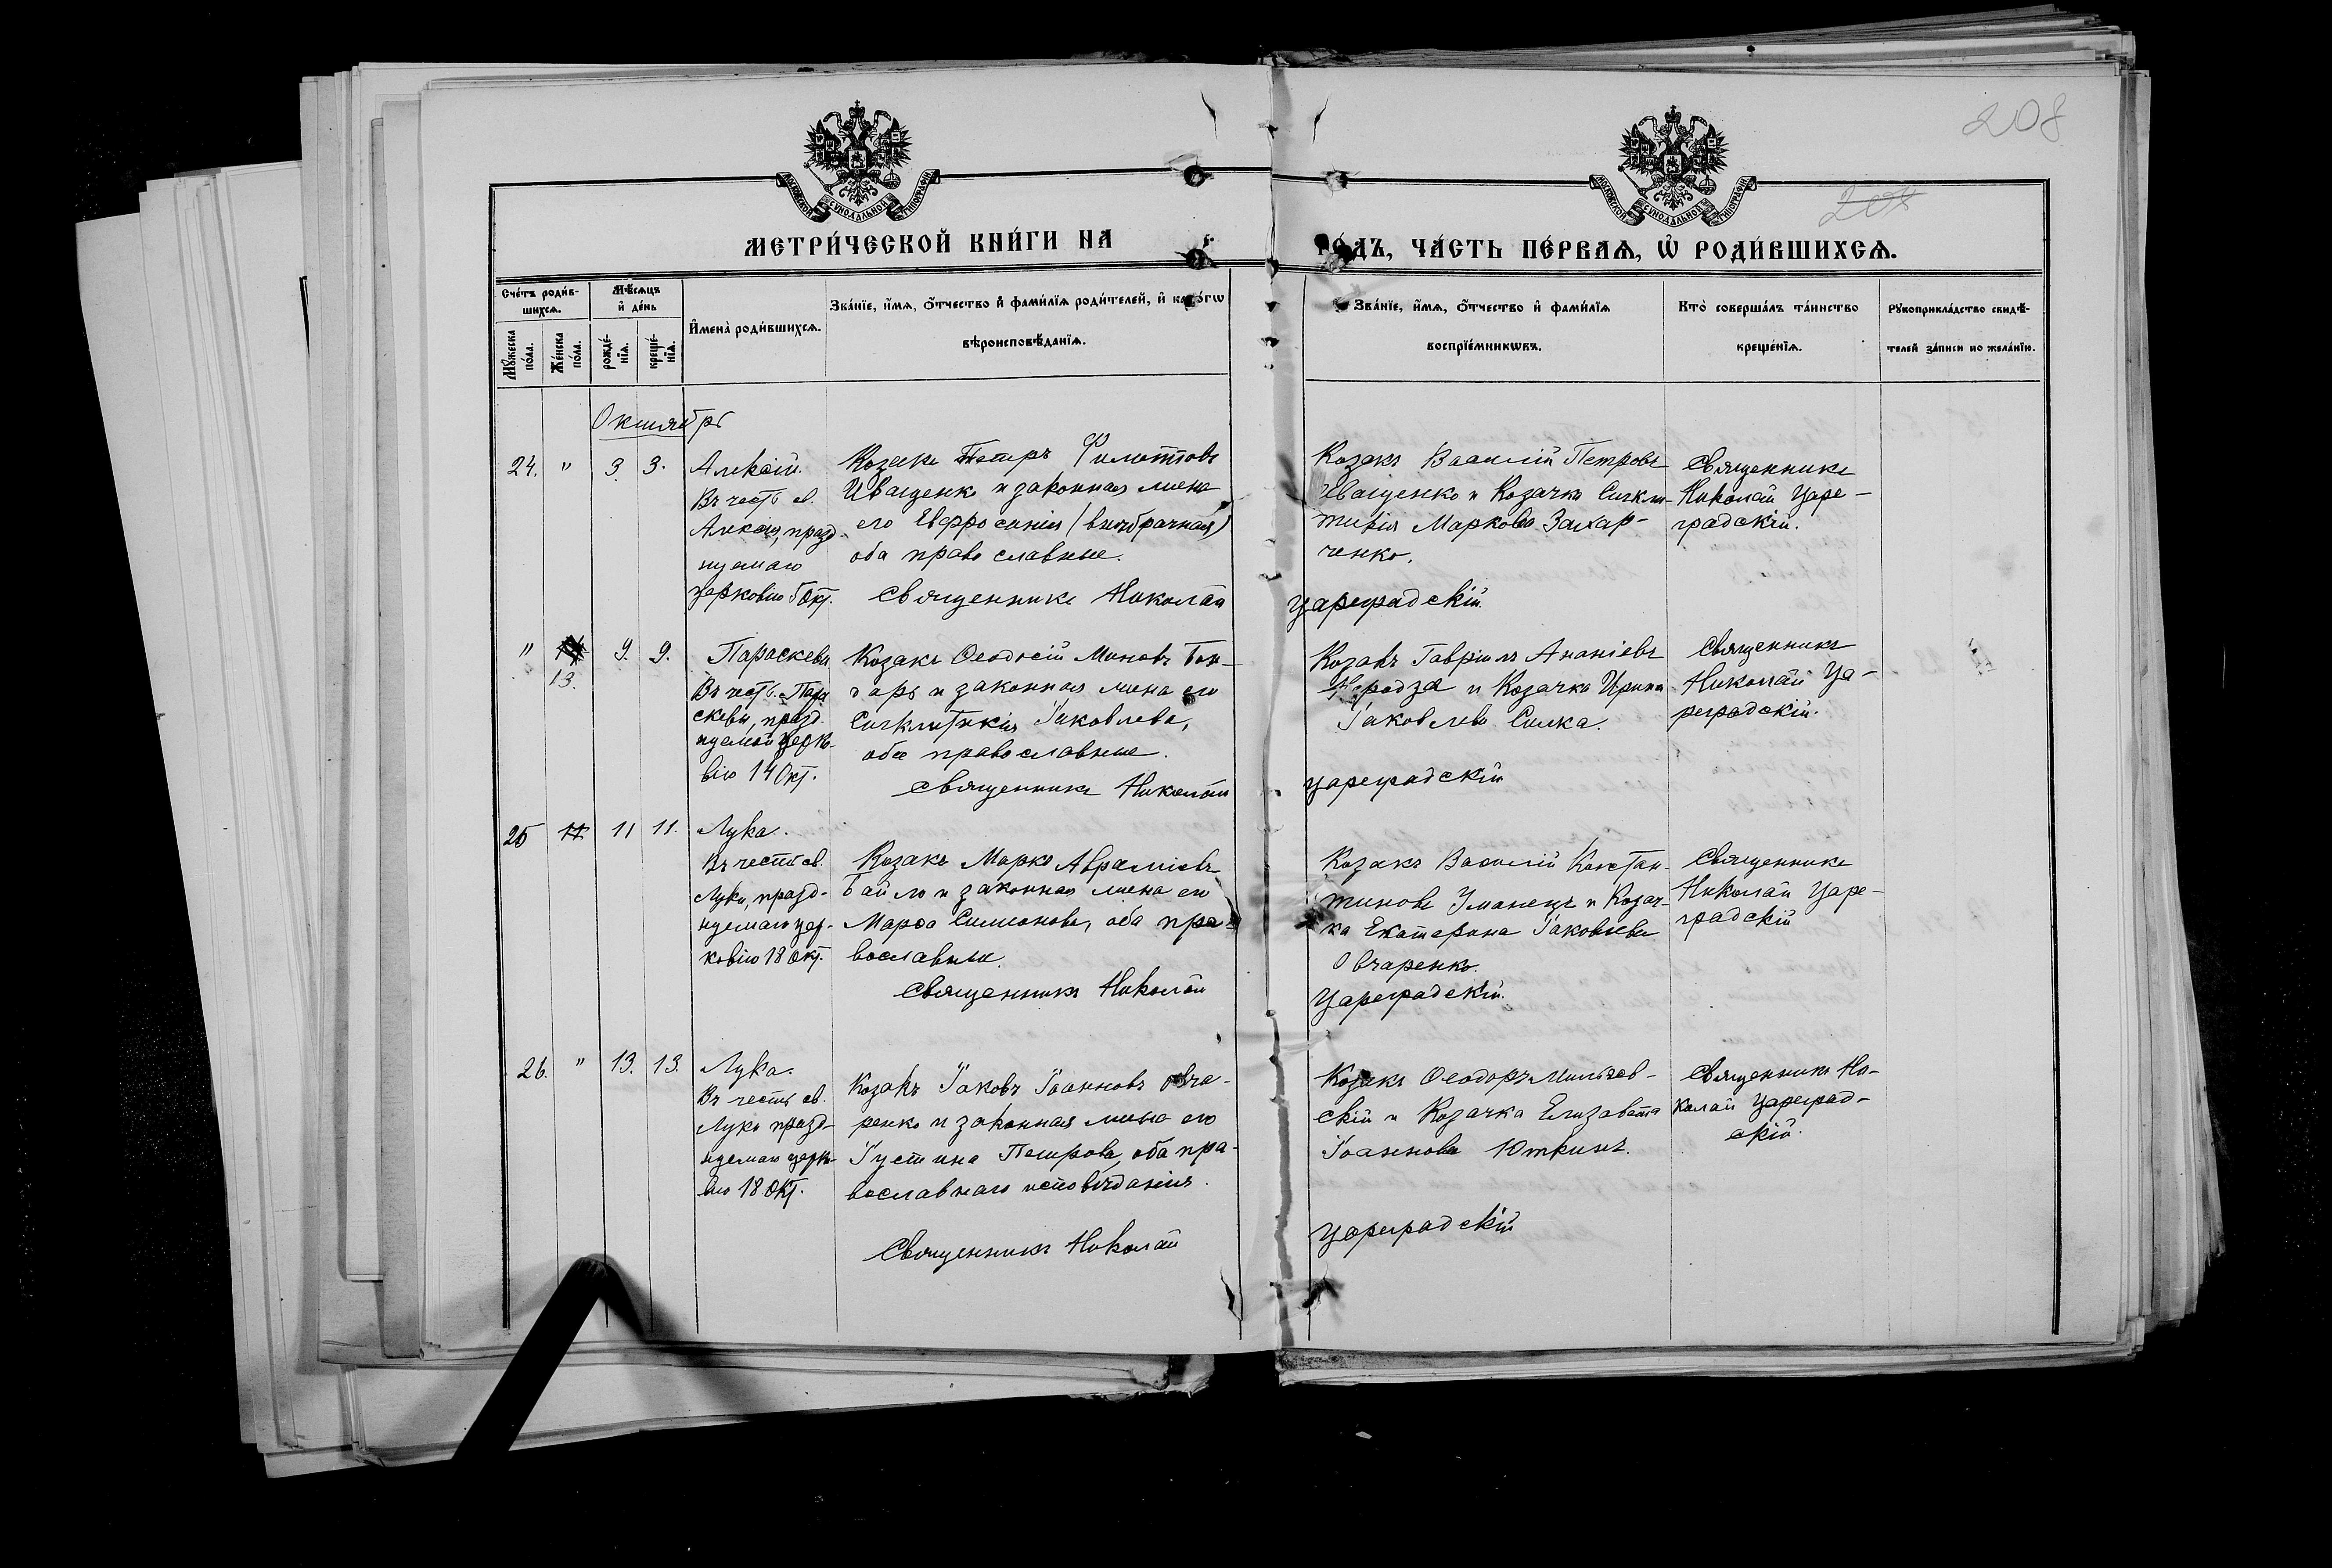 208
204
МОСКОВСКОЙ СѴНОДАЛЬНОЙ ТИПОГРАФІИ
МОСКОВСКОЙ СѴНОДАЛЬНОЙ ТИПОГРАФІИ
МЕТРИ́ЧЕСКОЙ КНИ́ГИ НА
ГО́ДЪ, ЧА́СТЬ ПЕ́РВАѦ, Ѡ҆ РОДИ́ВШИХСѦ.
Сче́тъ роди́в-
шихсѧ.
Мѣ́сѧцъ
и҆ де́нь
Мꙋ́жеска по́ла.
Же́нска по́ла.
рожде́-нїѧ.
креще́-нїѧ.
И҆мена̀ роди́вшихсѧ.
Зва́нїе, и҆́мѧ, ѻ҆́тчество и҆ фами́лїѧ роди́телей, и҆ како́гѡ
вѣроисповѣ́данїѧ.
Зва́нїе, и҆́мѧ, ѻ҆́тчество и҆ фами́лїѧ
воспрїе́мникѡвъ.
Кто̀ соверша́лъ та́инство
креще́нїѧ.
Рꙋкоприкла́дство свидѣ́-
телей за́писи по жела́нїю.
Октябрь
24. " 3. 3.
Алексій.
Въ честь св.
Алексія, празд-
нуемаго
церковію 5 Окт.
Козакъ Петръ Филоттовъ
Иващенко и законная жена
его Евфросинія (внѣбрачная)
оба православные.
Священникъ Николай
Козакъ Василій Петровъ
Иващенко и Козачка Синкли-
тикія Маркова Захар-
ченко.
Цареградскій.
Священникъ
Николай Царе-
градскій.
" 13. 9. 9.
Параскева
Въ честь Пара
скевы, празд-
нуемой церко-
вію 14 Окт.
Козакъ Ѳеодосій Миновъ Бон-
даръ и законная жена его
Синклитикія Іаковлева,
оба православные.
Священникъ Николай
Козакъ Гавріилъ Ананіевъ
и Козачка Ирина
Іаковлева Силка.
Цареградскій
Священникъ
Николай Ца-
реградскій.
25 11 11 11.
Лука.
Въ честь св.
Луки, празд-
нуемаго цер-
ковію 18 Окт.
Козакъ Марко Авраміевъ
Байло и законная жена его
Марѳа Симеонова, оба пра-
вославные.
Священникъ Николай
Козакъ Василій Констан-
тиновъ Уманецъ и Козач-
ка Екатерина Іаковлева
Овчаренко.
Цареградскій.
Священникъ
Николай Царе-
градскій
26. " 13. 13.
Лука.
Въ честь св.
Луки празд-
нуемаго церко-
вію 18 Окт.
Козакъ Іаковъ Іоанновъ Овча-
ренко и законная жена его
Іустина Петрова, оба пра-
вославнаго исповѣданія.
Священникъ Николай
Козакъ Ѳеодоръ Мильчев-
скій и Козачка Елизавета
Іоаннова
Цареградскій
Священникъ Ни-
колай Цареград-
скій.